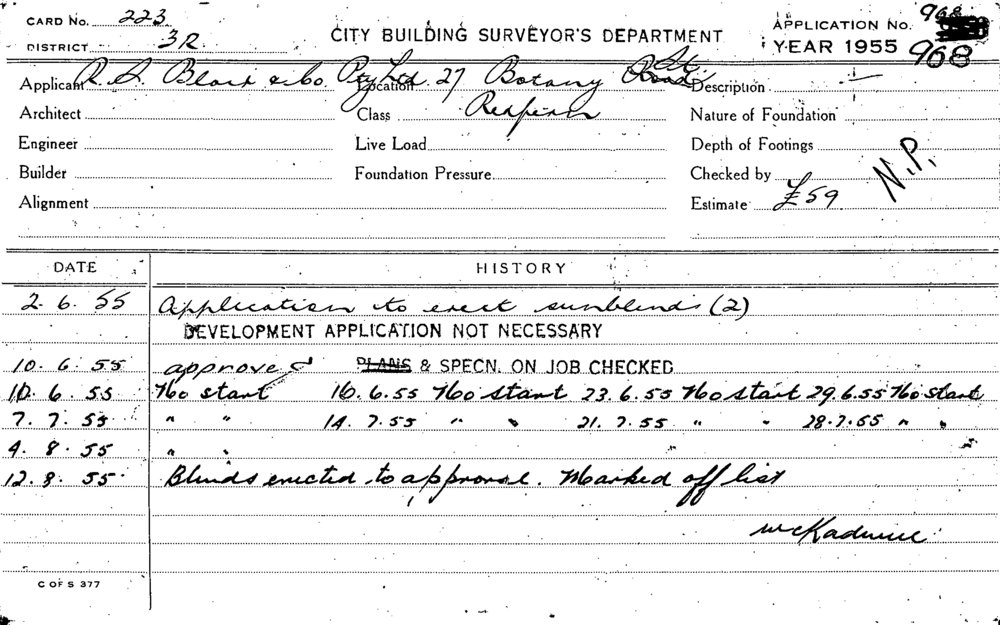 CARD No. 223
DISTRICT 3R
CITY BUILDING SURVEYOR'S DEPARTMENT
APPLICATION No. 968
YEAR 1955 968
Applicant R. S. Blair & Co. Pty Ltd. Location 27 Botany Road St. Description
Architect Class Redfern Nature of Foundation
Engineer Live Load Depth of Footings
Builder Foundation Pressure Checked by N.P.
Alignment Estimate £59
DATE HISTORY
2. 6. 55 Application to erect sunblinds (2)
DEVELOPMENT APPLICATION NOT NECESSARY
10. 6. 55 approved PLANS & SPECN. ON JOB CHECKED
10. 6. 55 No start 16.6.55 No start 23.6.55 No start 29.6.55 No start
7. 7. 55 " " 14.7.55 " " 21.7.55 " " 28.7.55 " "
4. 8. 55 " "
12. 8. 55 Blinds erected to approval. Marked off list
C OF S 377